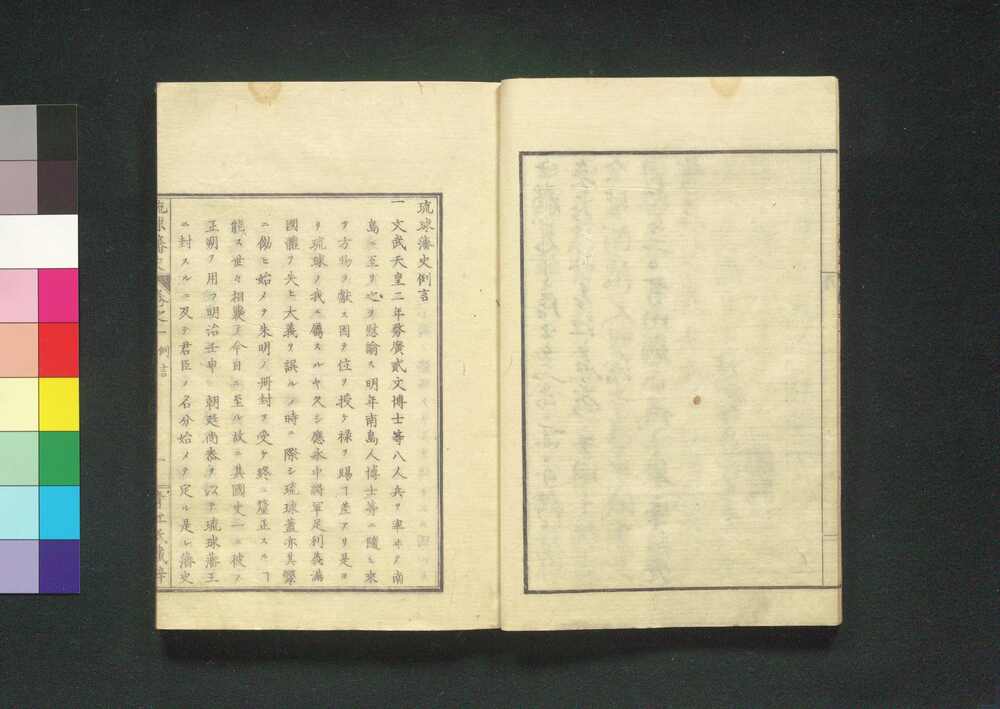 琉球藩史例言
一文武天皇二年務廣貳文博士等八人兵ヲ率ヰテ南
島ニ至リ之ヲ慰諭ス明年南島人博士等ニ隨ヒ來
テ方物ヲ獻ス因テ位ヲ授ケ禄ヲ賜ヿ差アリ是ヨ
リ琉球ノ我ニ屬スルヤ久シ應永中將軍足利義滿
國體ヲ失ヒ大義ヲ誤ルノ時ニ際シ琉球蓋亦其顰
ニ傚ヒ始メテ朱明ノ册封ヲ受ケ終ニ釐正スルヿ
能ス世々相襲テ今日ニ至ル故ニ其國史一ニ彼ノ
正朔ヲ用フ明治壬申 朝廷尚泰ヲ以テ琉球藩王
ニ封スルニ及テ君臣ノ名分始メテ定ル是レ藩史
琉球藩史 卷之一 例言 一